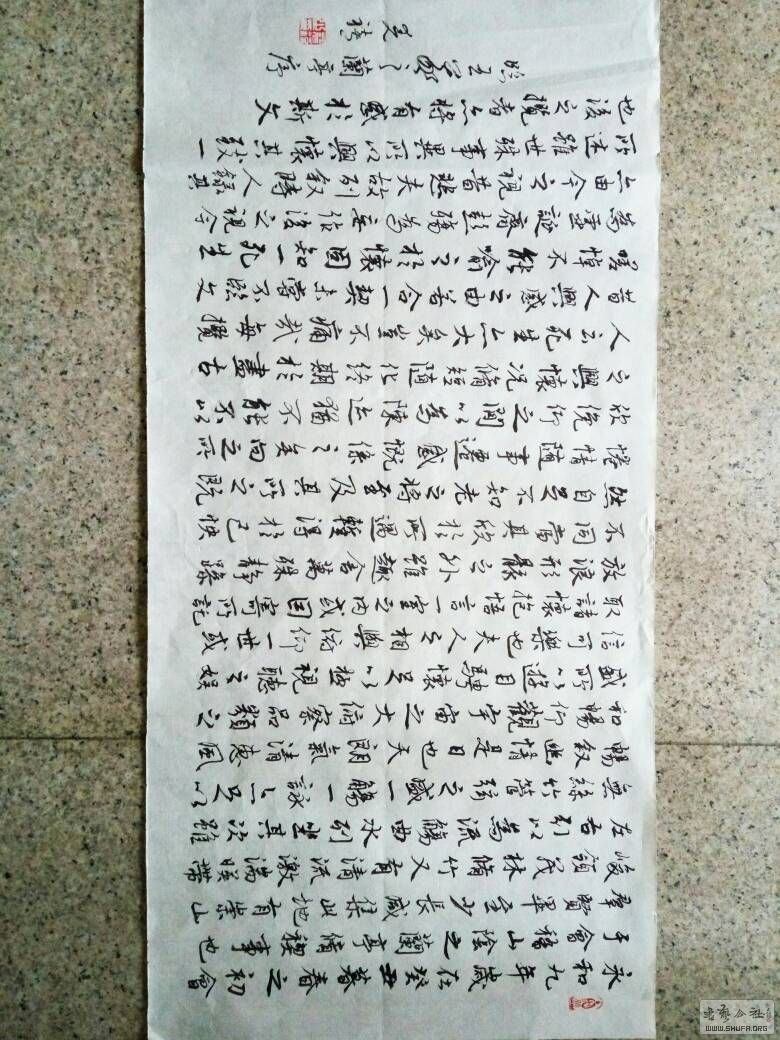 永和九年歲在癸丑暮春之初會
于會稽山陰之蘭亭脩禊事也
羣賢畢至少長咸集此地有崇山
峻領茂林脩竹又有清流激湍暎帶
左右引以為流觴曲水列坐其次雖
無絲竹管弦之盛一觴一詠亦足以
暢敘幽情是日也天朗氣清惠風
和暢仰觀宇宙之大俯察品類之
盛所以遊目騁懷足以極視聽之娛
信可樂也夫人之相與俯仰一世或
取諸懷抱悟言一室之內或因寄所託
放浪形骸之外雖趣舍萬殊靜躁
不同當其欣於所遇暫得於己快
然自足不知老之將至及其所之既
惓情隨事遷感慨係之矣向之所
欣俛仰之間以為陳迹猶不能不以
之興懷況脩短隨化終期於盡古
人云死生亦大矣豈不痛哉每攬
昔人興感之由若合一契未嘗不臨文
嗟悼不能喻之於懷固知一死生
為虛誕齊彭殤為妄作後之視今
亦由今之視昔悲夫故列敘時人錄其
所述雖世殊事異所以興懷其致一
也後之攬者亦將有感於斯文
臨王羲之蘭亭序
書藝公社
WWW.SHUFA.ORG